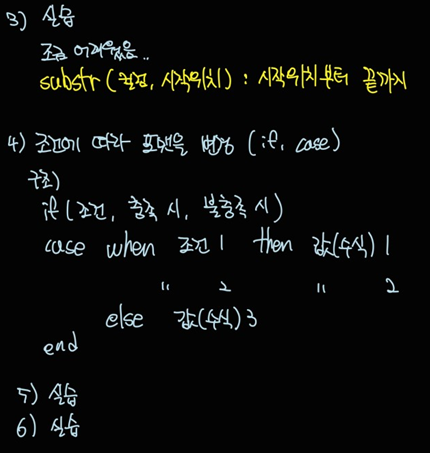 3) 실습
조금 어려웠음..
substr(컬럼, 시작위치) : 시작위치부터 끝까지
4) 조건에 따라 포맷을 변경 (if, case)
구조)
if(조건, 충족 시, 불충족 시)
case when 조건 1 then 값(수식) 1
" 2 " 2
else 값(수식) 3
end
5) 실습
6) 실습